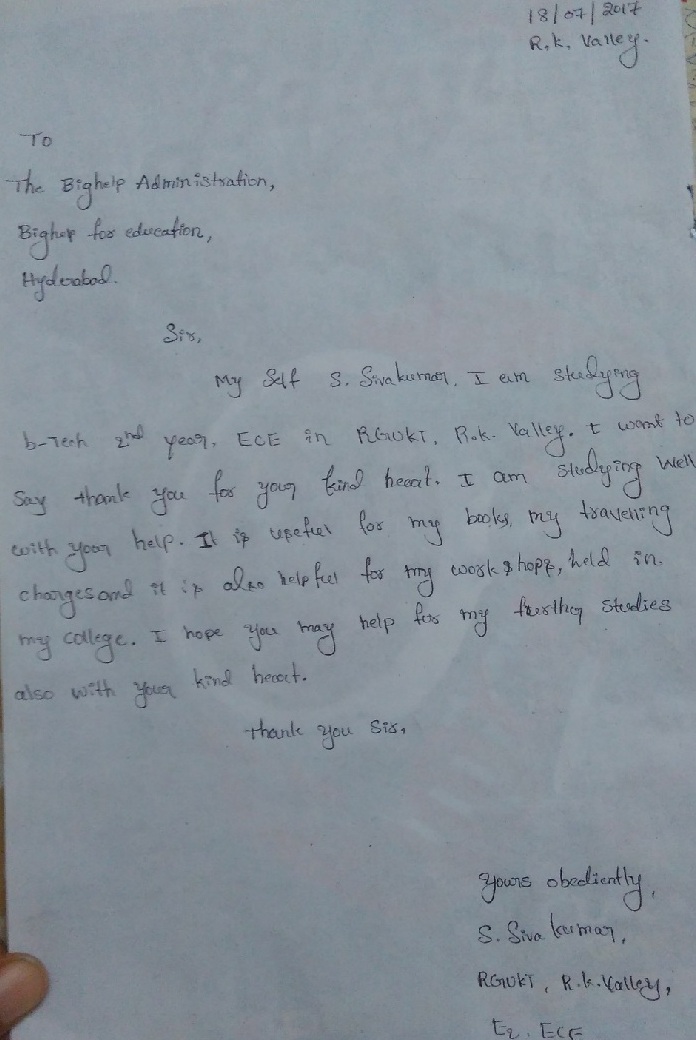 18/07/2017
R.k. Valley.
To
The Bighelp Administration,
Bighep for education,
Hyderabad.
Sir,
My Self S. Sivakumar. I am studying
b-Tech 2nd year, ECE in RGUKT, R.k. Valley. I want to
Say thank you for your kind heart. I am studying well
with your help. It is usefull for my books, my travelling
charges and it is also helpfull for my workshopps, held in
my college. I hope you may help for my further studies
also with your kind heart.
Thank you Sir,
Yours obediently,
S. Siva kumar,
RGUKT, R.k. Valley,
E2, ECE